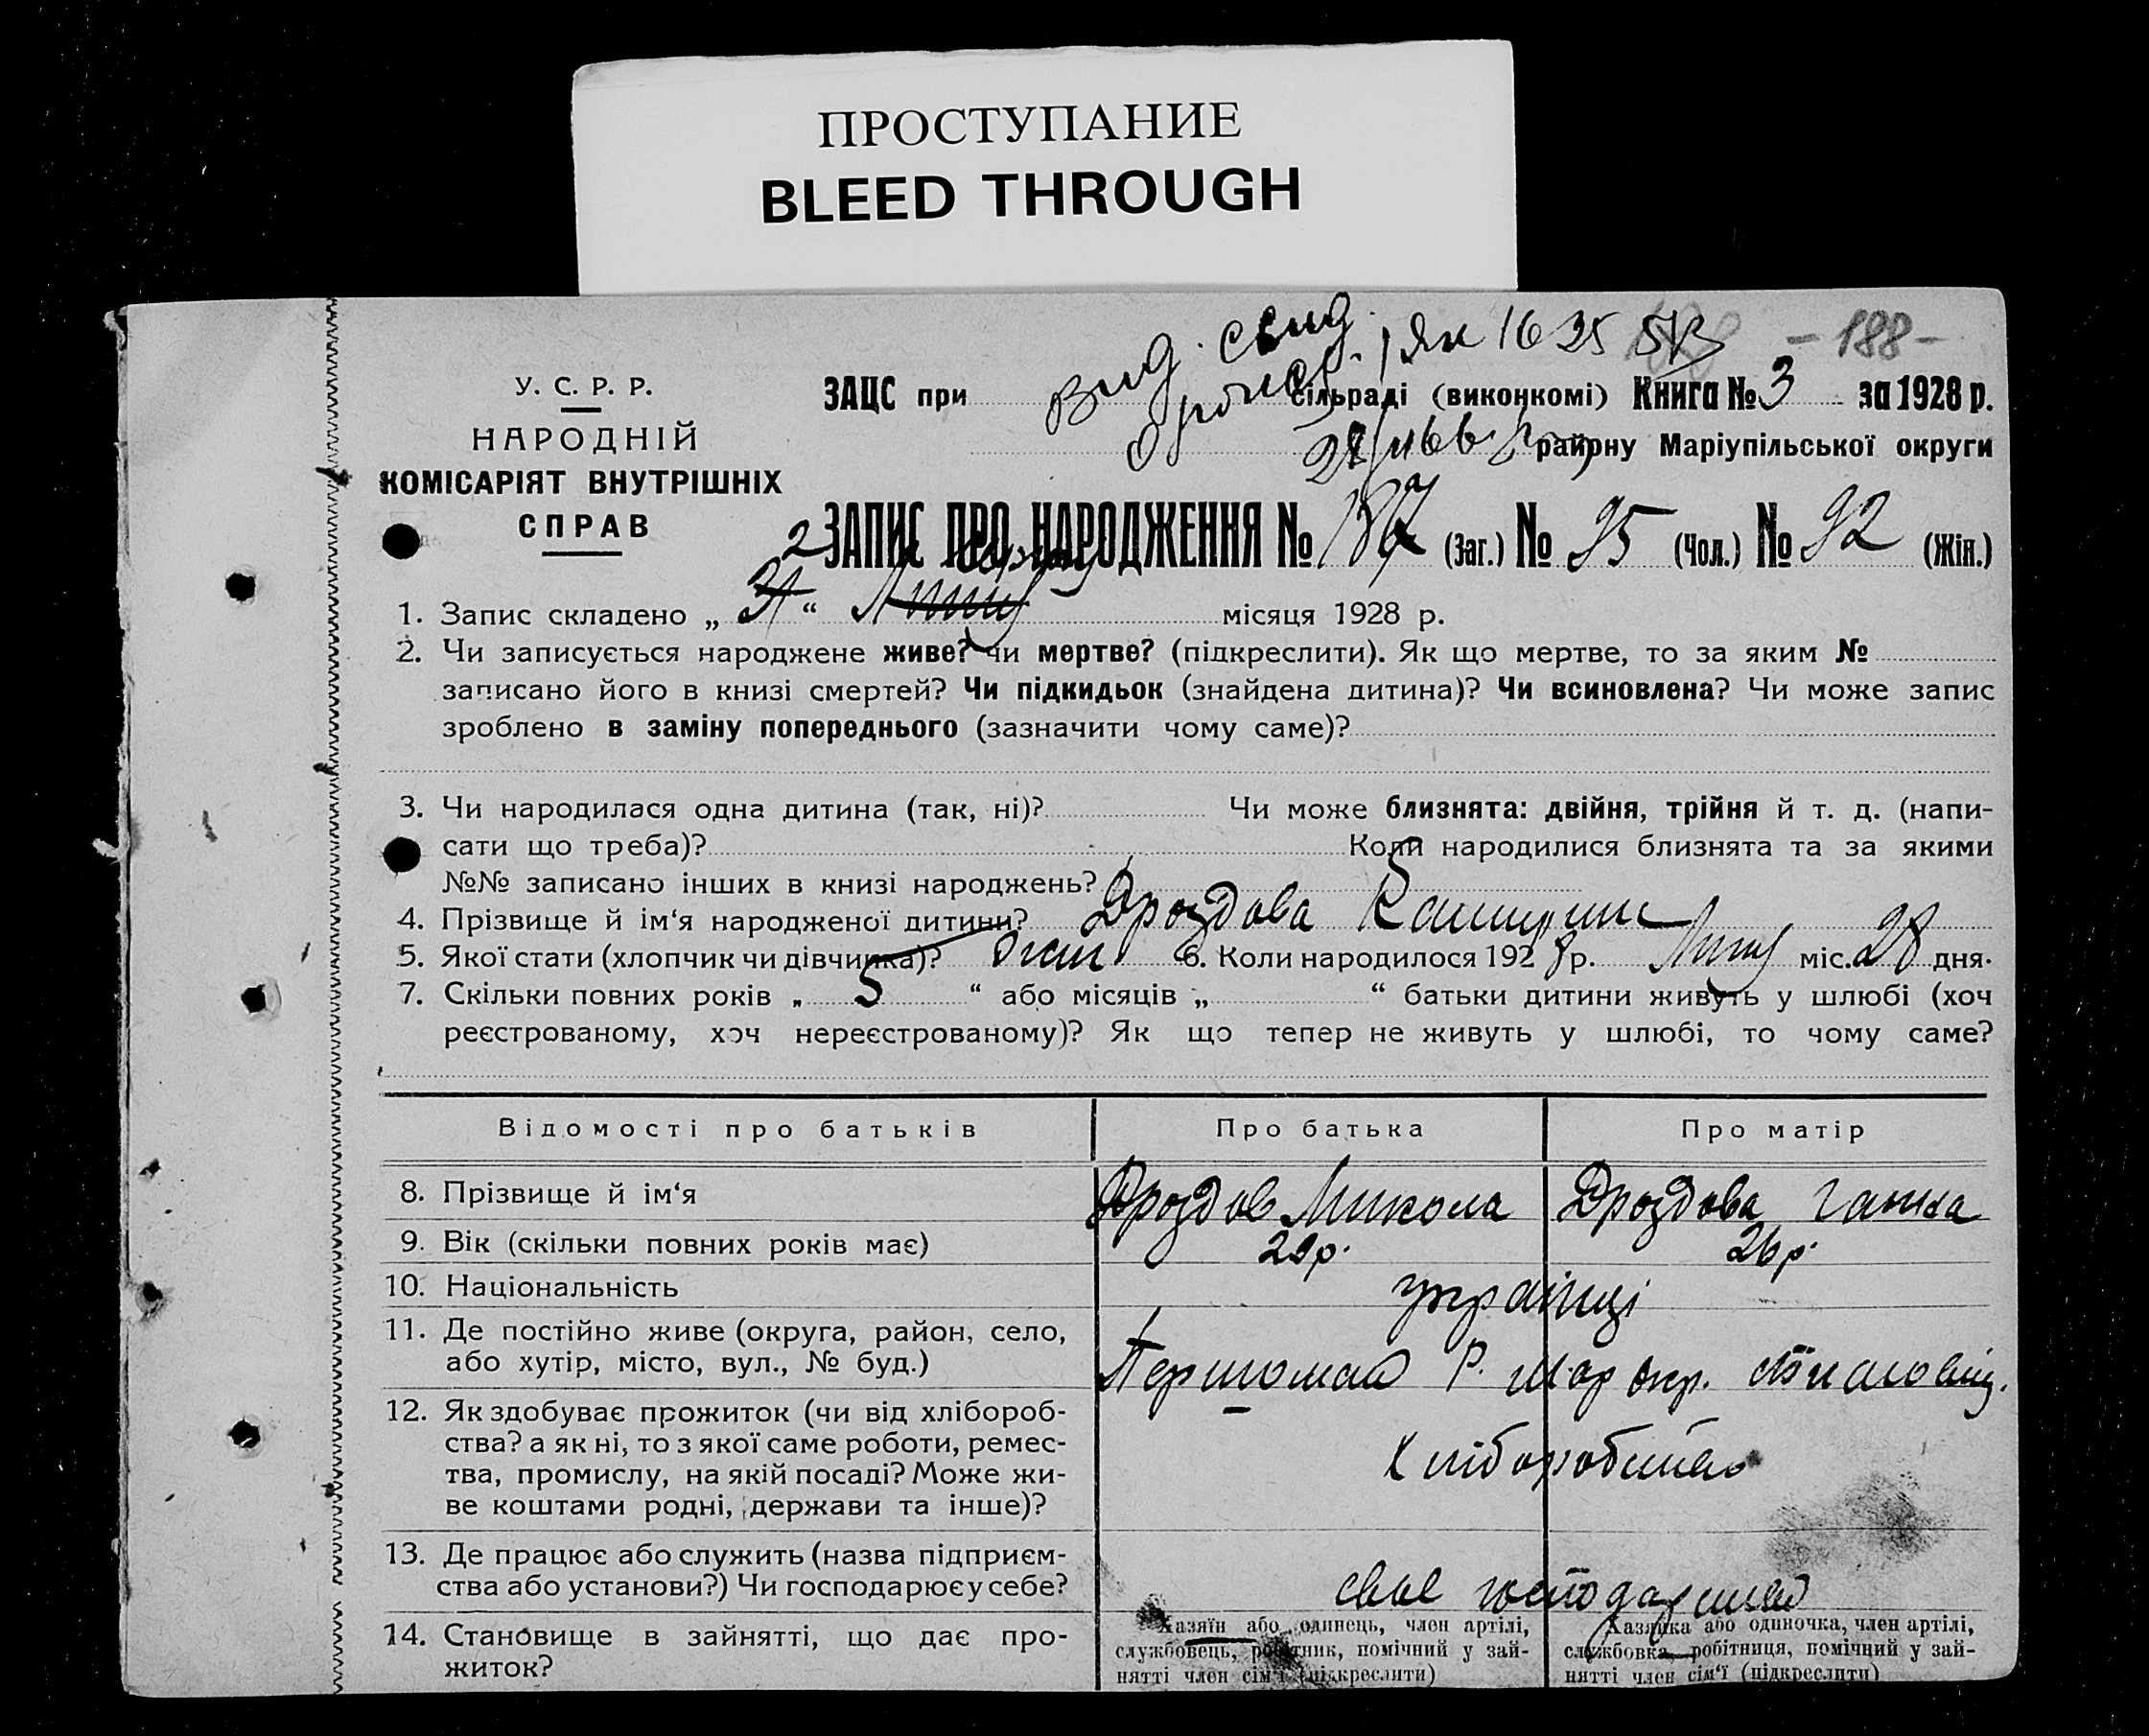 ПРОСТУПАНИЕ
BLEED THROUGH
вид. свид. Як 16 35 - 188 -
У. С. Р. Р.
НАРОДНІЙ
КОМІСАРІЯТ ВНУТРІШНІХ
СПРАВ
ЗАЦС при сільраді (виконкомі) Книга № 3 за 1928 р.
району Маріупільської округи
ЗАПИС ПРО НАРОДЖЕННЯ № 187 (Заг.) № 95 (Чол.) № 92 (Жін.)
1. Запис складено „ 31 “ Липня місяця 1928 р.
2. Чи записується народжене живе? чи мертве? (підкреслити). Як що мертве, то за яким №
записано його в книзі смертей? Чи підкидьок (знайдена дитина)? Чи всиновлена? Чи може запис
зроблено в заміну попереднього (зазначити чому саме)?
3. Чи народилася одна дитина (так, ні)? Чи може близнята: двійня, трійня й т. д. (напи-
сати що треба)? Коли народилися близнята та за якими
№№ записано інших в книзі народжень?
4. Прізвище й ім‘я народженої дитини? Дроздова
5. Якої стати (хлопчик чи дівчинка)? жін 6. Коли народилося 1928 р. Липня міс. 28 дня.
7. Скільки повних років „ 5 “ або місяців „ “ батьки дитини живуть у шлюбі (хоч
реєстрованому, хоч нереєстрованому)? Як що тепер не живуть у шлюбі, то чому саме?
Відомості про батьків Про батька Про матір
8. Прізвище й ім‘я Дроздов Микола Дроздова Ганна
9. Вік (скільки повних років має) 29 р. 26 р.
10. Національність українці
11. Де постійно живе (округа, район, село,
або хутір, місто, вул., № буд.) Першомай Р. Мар окр.
12. Як здобуває прожиток (чи від хлібороб-
ства? а як ні, то з якої саме роботи, ремес-
тва, промислу, на якій посаді? Може жи-
ве коштами родні, держави та інше)?
13. Де працює або служить (назва підприєм-
ства або установи?) Чи господарює у себе? своє
14. Становище в зайнятті, що дає про-
житок?
Хазяїн або одинець, член артілі,
службовець, робітник, помічний у зай-
нятті член сім‘ї (підкреслити)
Хазяйка або одиночка, член артілі,
службовка, робітниця, помічний у зай-
нятті член сім‘ї (підкреслити)